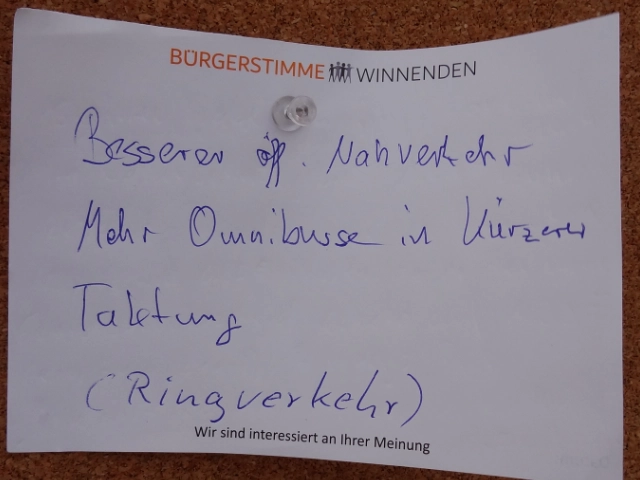 BÜRGERSTIMME WINNENDEN
Besserer öff. Nahverkehr
Mehr Omnibusse in kürzerer
Taktung
(Ringverkehr)
Wir sind interessiert an Ihrer Meinung